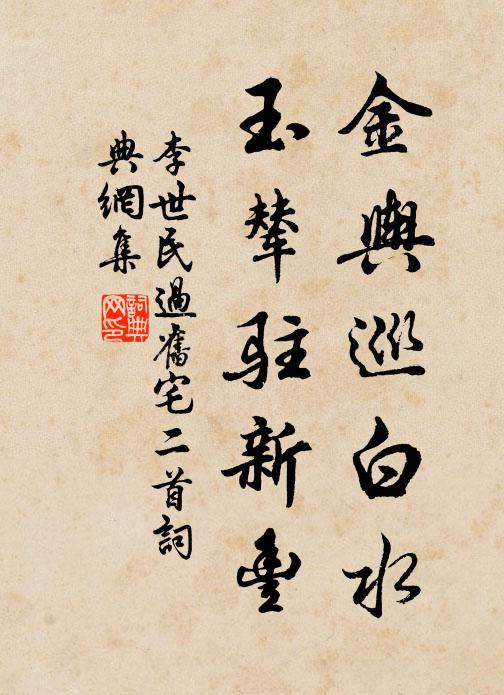 金輿巡白水
玉輦駐新豐
李世民過舊宅二首詞
典網集
詞典
网印